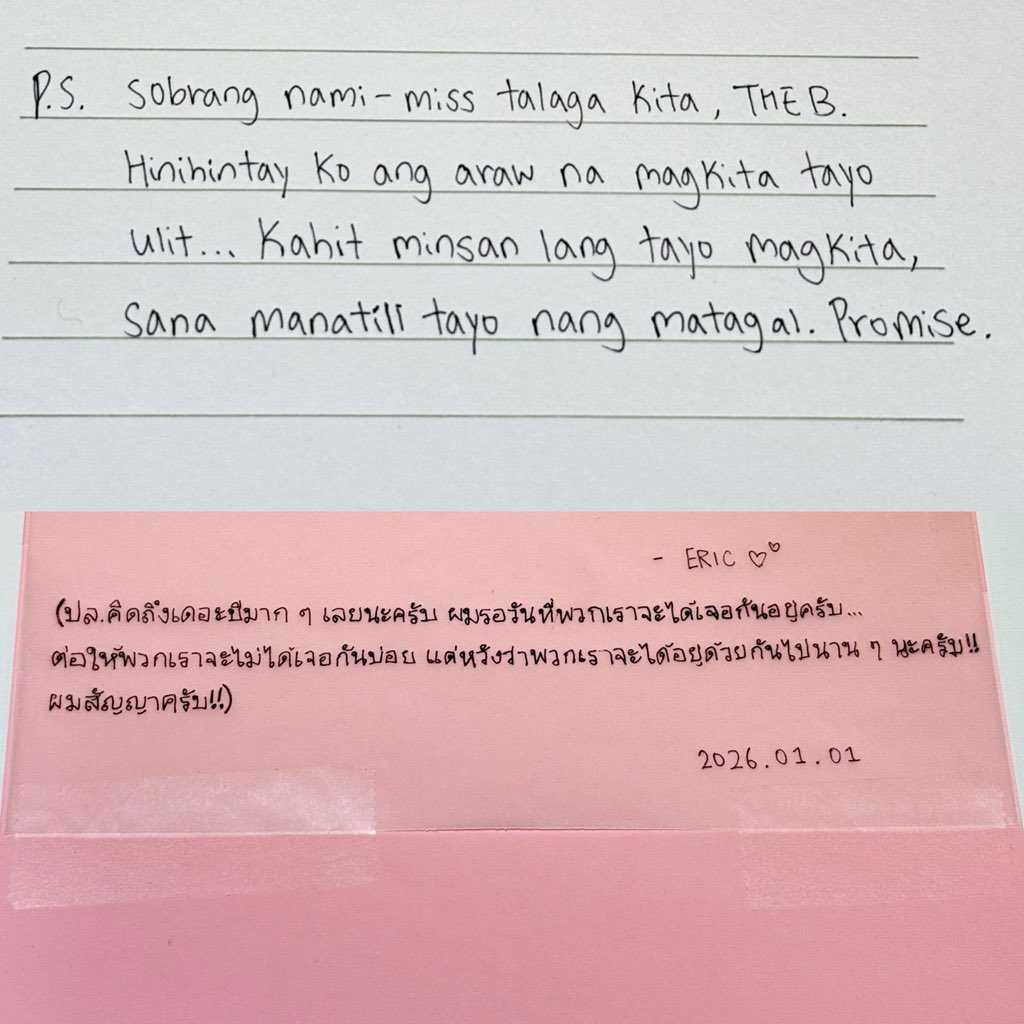 P.S. Sobrang nami-miss talaga kita, THE B.
Hinihintay ko ang araw na magkita tayo
ulit... Kahit minsan lang tayo magkita,
sana manatili tayo nang matagal. Promise.
- ERIC ♡♡
(ปล.คิดถึงเดอะบีมาก ๆ เลยนะครับ ผมรอวันที่พวกเราจะได้เจอกันอยู่ครับ...
ต่อให้พวกเราจะไม่ได้เจอกันบ่อย แต่หวังว่าพวกเราจะได้อยู่ด้วยกันไปนาน ๆ นะครับ!!
ผมสัญญาครับ!!)
2026.01.01